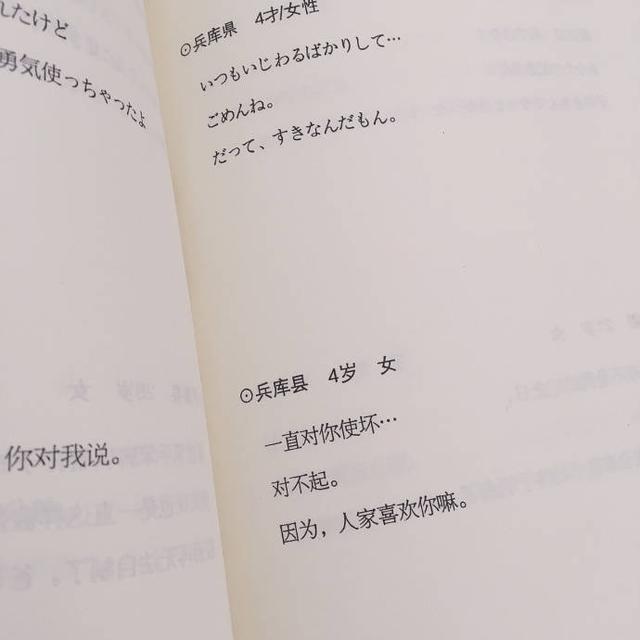 れたけど
勇気使っちゃったよ
你对我说。
⊙兵库県 4才/女性
いつもいじわるばかりして…
ごめんね。
だって、すきなんだもん。
⊙兵库县 4岁 女
一直对你使坏…
对不起。
因为，人家喜欢你嘛。